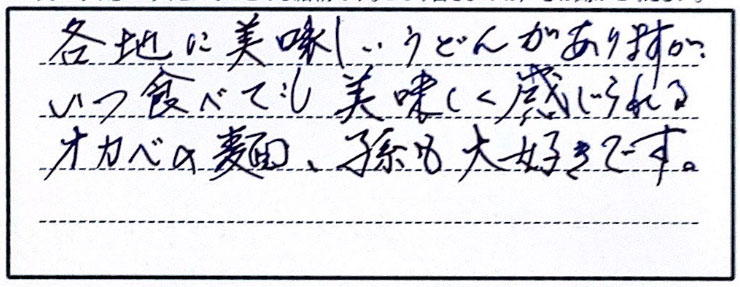 各地に美味しいうどんがありますが、
いつ食べても美味しく感じられる
オカベの麺、孫も大好きです。